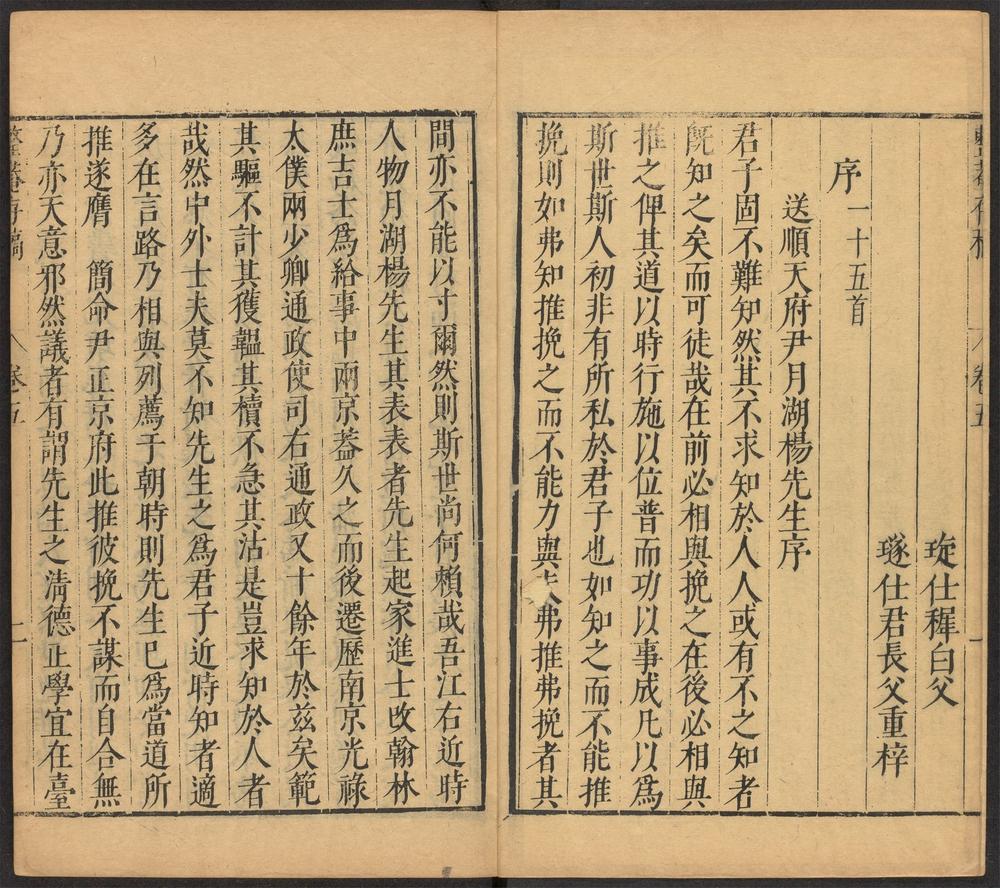 卷五
一
琁仕穉白父
璲仕君長父重梓
序一十五首
送順天府尹月湖楊先生序
君子固不難知然其不求知於人人或有不之知者
旣知之矣而可徒哉在前必相與挽之在後必相與
推之俾其道以時行施以位普而功以事成凡以爲
斯世斯人初非有所私於君子也如知之而不能推
挽則如弗知推挽之而不能力與弗推弗挽者其
間亦不能以寸爾然則斯世尚何賴哉吾江右近時
人物月湖楊先生其表表者先生起家進士改翰林
庶吉士爲給事中兩京葢久之而後遷歷南京光祿
太僕兩少卿通政使司右通政又十餘年於玆矣範
其驅不計其獲韞其櫝不急其沽是豈求知於人者
哉然中外士夫莫不知先生之爲君子近時知者適
多在言路乃相與列薦于朝時則先生已爲當道所
推遂膺 簡命尹正京府此推彼挽不謀而自合無
乃亦天意邪然議者有謂先生之淸德正學宜在臺
存稿 卷五
二